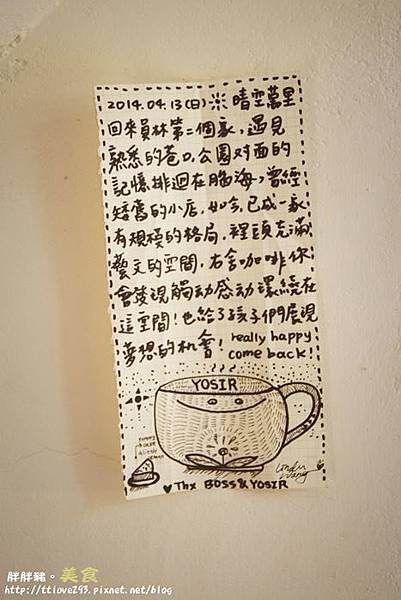 2014.04.13(日) 晴空萬里
回來員林第二個家,遇見
熟悉的巷口,公園对面的
記憶排迴在腦海,曾經
矮舊的小店,如今,已成一家
有規模的格局,裡頭充滿
藝文的空間,右舍咖啡你
會發現觸动感动環繞在
這空間!也給了孩子們展現
夢想的机會! really happy
come back!
YOSIR
Thx BOSS & YOSIR
胖胖豬。美食
http://ttlove293.pixnet.net/blog